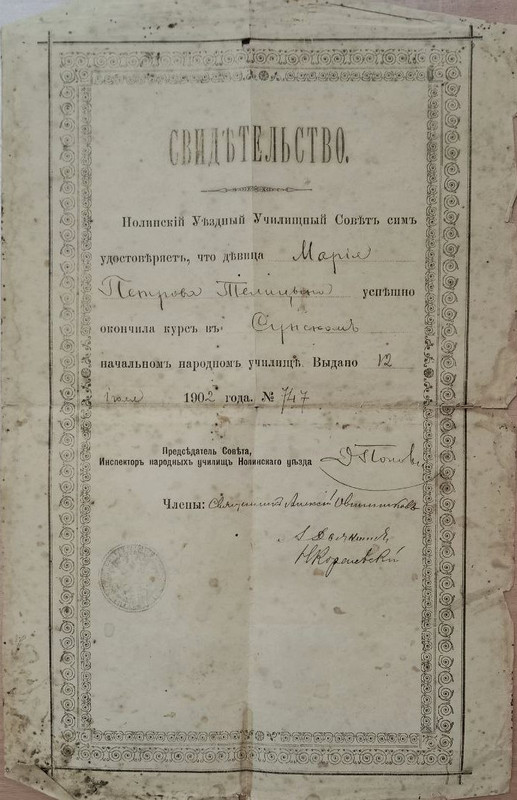 СВИДѢТЕЛЬСТВО.
Нолинскій Уѣздный Училищный Совѣтъ симъ
удостовѣряетъ, что дѣвица Марія
Петрова успѣшно
окончила курсъ въ
начальномъ народномъ училищѣ. Выдано 12
1902 года. № 747
Предсѣдатель Совѣта,
Инспекторъ народныхъ училищъ Нолинскаго уѣзда Д Поповъ
Члены: Священникъ Алексій Овчинниковъ